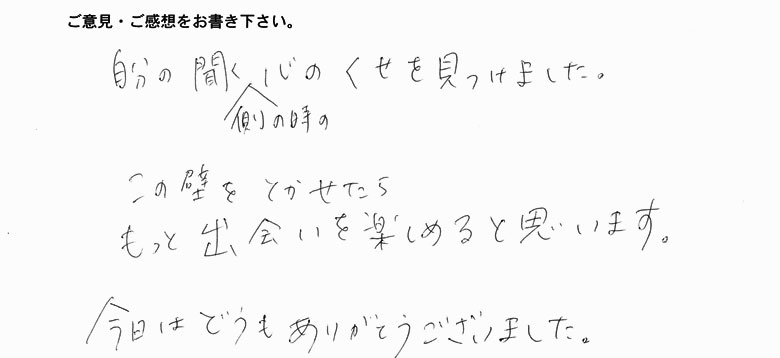 ご意見・ご感想をお書き下さい。
自分の聞く心のくせを見つけました。
側の時の
この壁をとかせたら
もっと出会いを楽しめると思います。
今日はどうもありがとうございました。